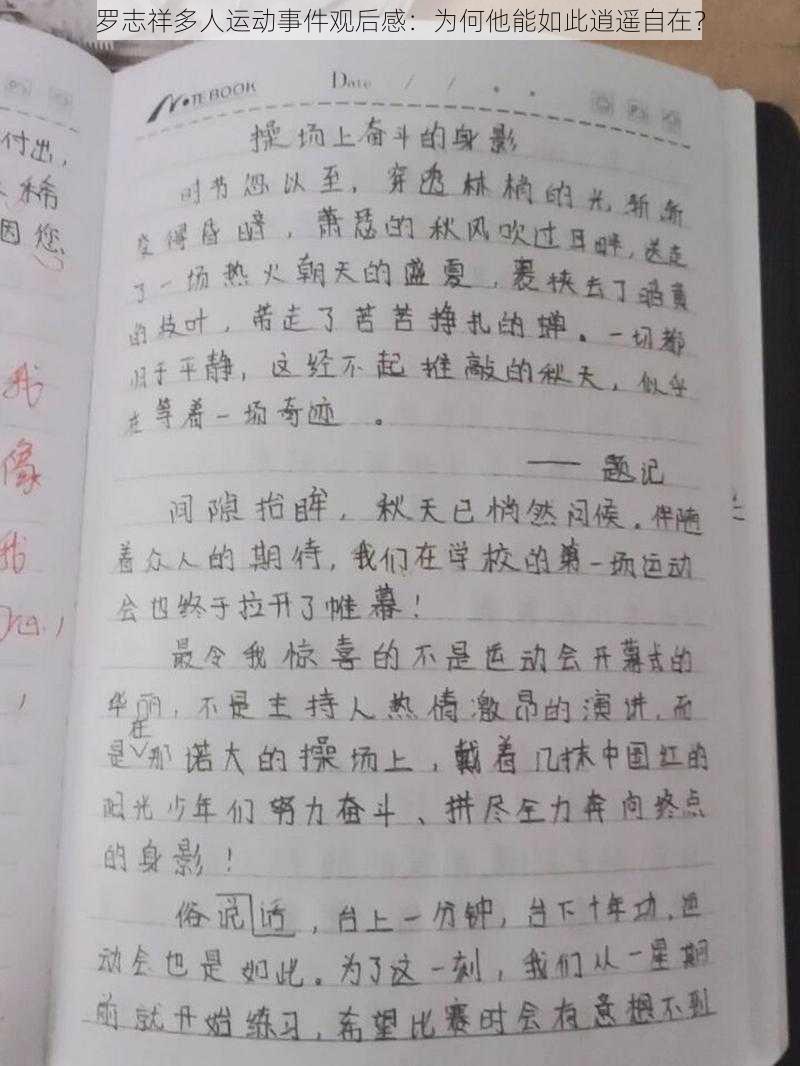 罗志祥多人运动事件观后感：为何他能如此逍遥自在？
NOTEBOOK Date / / . .
操场上奋斗的身影
时节忽以至，穿透林梢的光渐渐
变得昏暗，萧瑟的秋风吹过耳畔，送走
了一场热火朝天的盛夏，裹挟去了焰黄
的枝叶，带走了苦苦挣扎的蝉。一切都
归于平静，这经不起推敲的秋天，似乎
在等着一场奇迹。
——题记
间隙抬眸，秋天已悄然问候。伴随
着众人的期待，我们在学校的第一场运动
会也终于拉开了帷幕！
最令我惊喜的不是运动会开幕式的
华丽，不是主持人热情激昂的演讲，而
是在那诺大的操场上，戴着几抹中国红的
阳光少年们努力奋斗、拼尽全力奔向终点
的身影！
俗说话，台上一分钟，台下十年功，运
动会也是如此。为了这一刻，我们从一星期
前就开始练习，希望比赛时会有意想不到
付出，
稀
因您
我
像
我